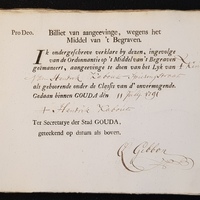 Pro Deo. Billiet van aangeevinge, wegens het
Middel van 't Begraven.
IK ondergeschreve verklare by dezen, ingevolge
van de Ordonnantie op 't Middel van 't Begraven
geëmaneert, aangeevinge te doen van het Lyk van
als gehoorende onder de Classis van d' onvermogende.
Gedaan binnen GOUDA den 11 July 1791
Hendrik
Ter Secretarye der Stad GOUDA,
geteekend op datum als boven.